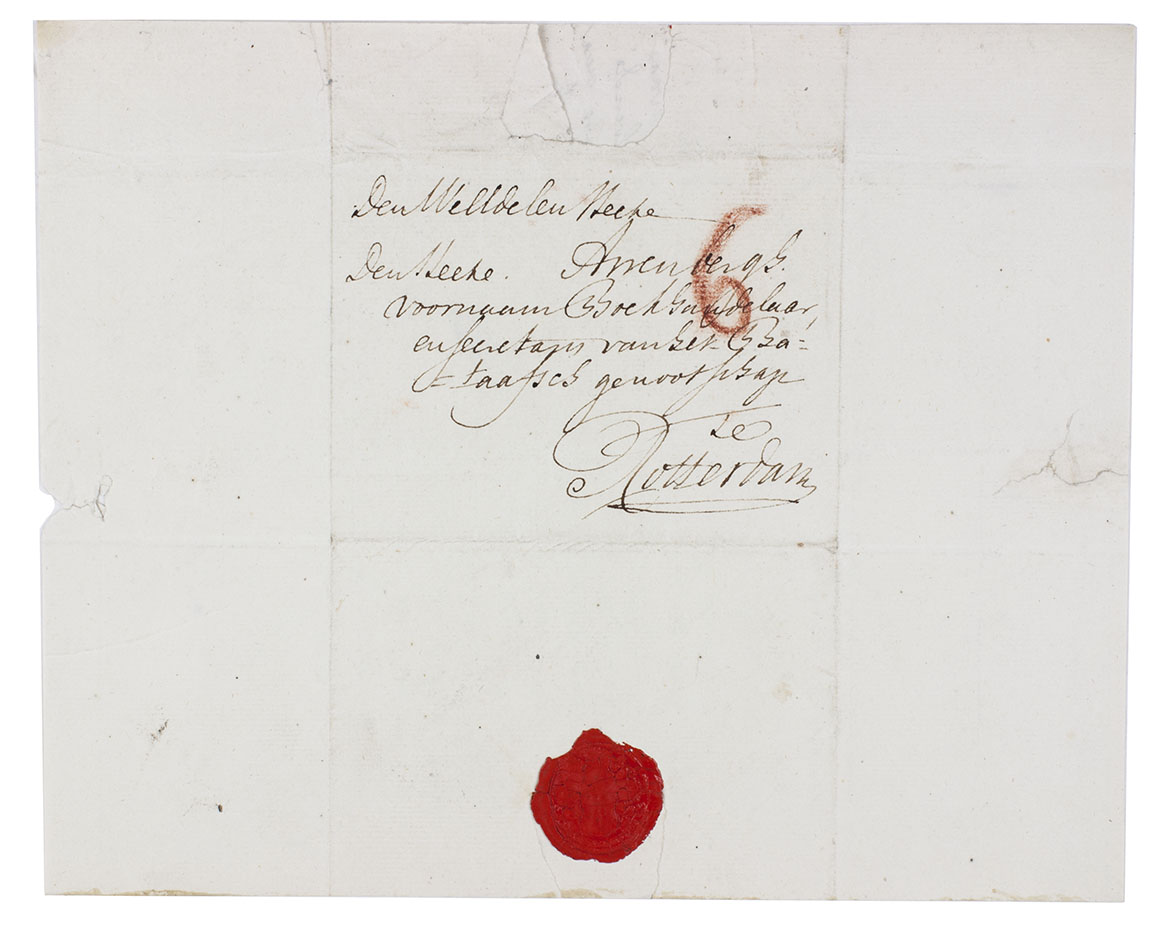 Den WelEdelen Heere
Den Heere. Arrenbergh.
6
voornaam Boekhandelaar,
en secretaris van het Ba=
=taafsch genootschap
te
Rotterdam